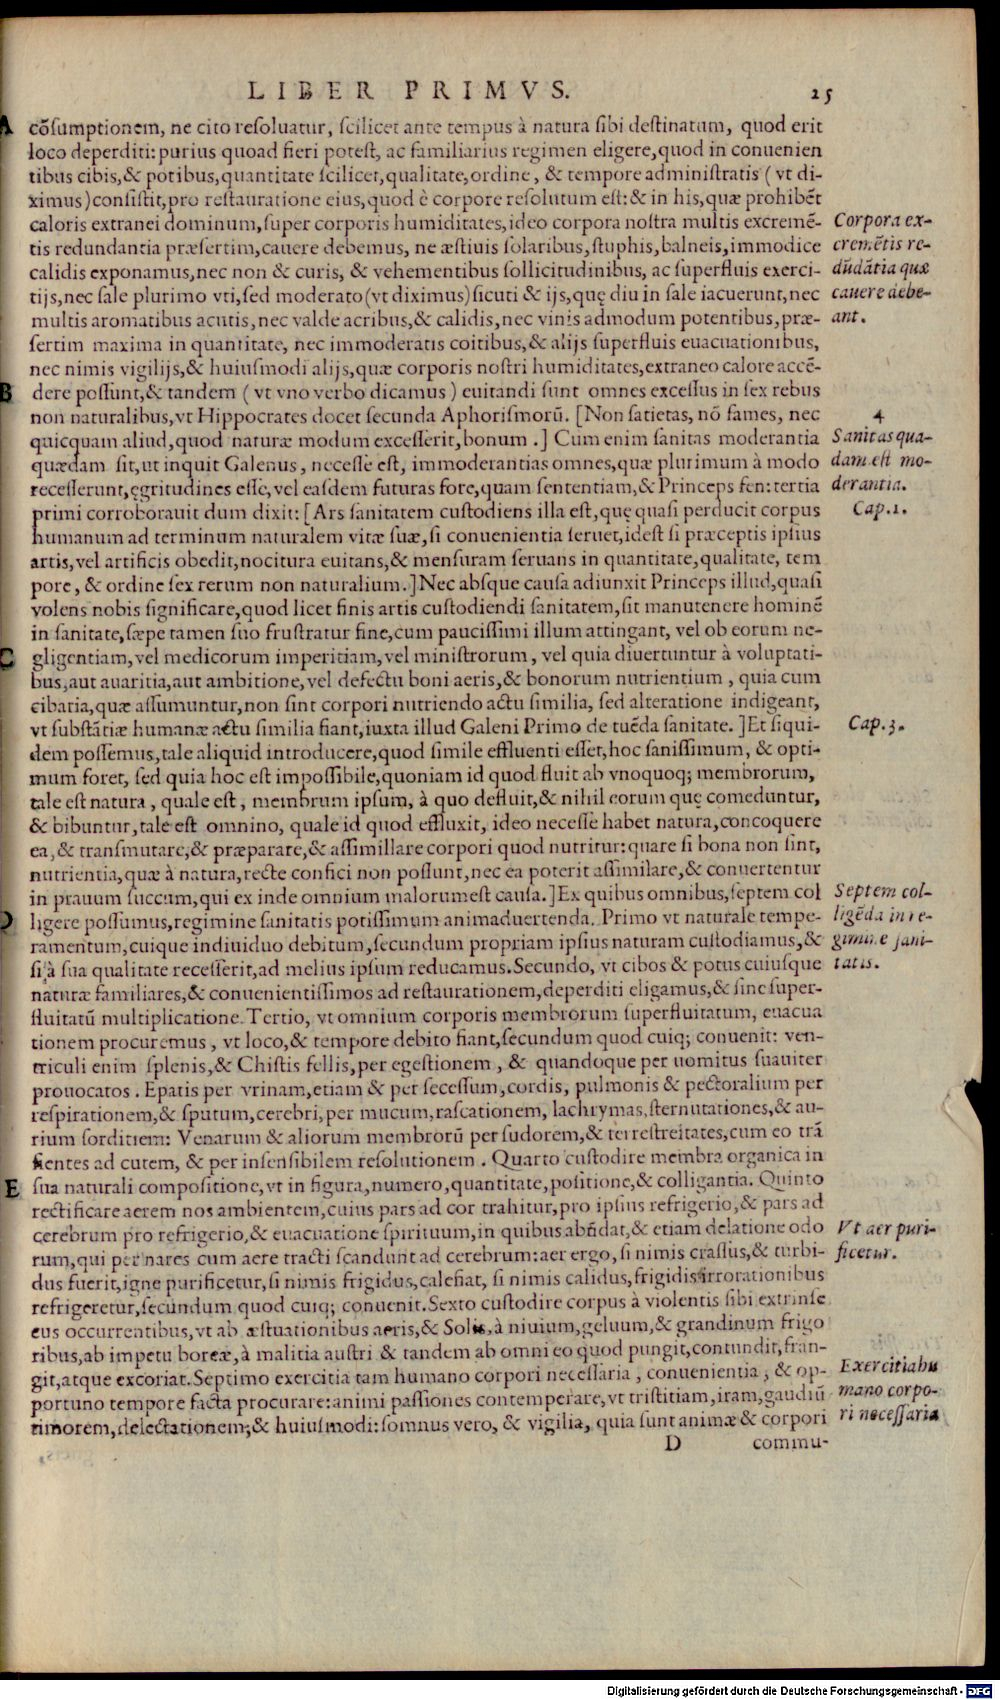 LIBER PRIMVS. 25
A
cõsumptionem, ne cito resoluatur, scilicet ante tempus à natura sibi destinatum, quod erit
loco deperditi: purius quoad fieri potest, ac familiarius regimen eligere, quod in conuenien
tibus cibis, & potibus, quantitate scilicet, qualitate, ordine, & tempore administratis (vt di-
ximus) consistit, pro restauratione eius, quod è corpore resolutum est: & in his, quæ prohibẽt
caloris extranei dominum, super corporis humiditates, ideo corpora nostra multis excremẽ-
Corpora ex-
tis redundantia præsertim, cauere debemus, ne æstiuis solaribus, stuphis, balneis, immodice
cremẽtis re-
calidis exponamus, nec non & curis, & vehementibus sollicitudinibus, ac superfluis exerci-
dũdãtia quæ
tijs, nec sale plurimo vti, sed moderato (vt diximus) sicuti & ijs, quę diu in sale iacuerunt, nec
cauere debe-
multis aromatibus acutis, nec valde acribus, & calidis, nec vinis admodum potentibus, præ-
ant.
sertim maxima in quantitate, nec immoderatis coitibus, & alijs superfluis euacuationibus,
nec nimis vigilijs, & huiusmodi alijs, quæ corporis nostri humiditates, extraneo calore accẽ-
B
dere possunt, & tandem (vt vno verbo dicamus) euitandi sunt omnes excessus in sex rebus
non naturalibus, vt Hippocrates docet secunda Aphorismorũ. [Non satietas, nõ fames, nec
4
quicquam aliud, quod naturæ modum excesserit, bonum.] Cum enim sanitas moderantia
Sanitas quæ-
quædam sit, ut inquit Galenus, necesse est, immoderantias omnes, quæ plurimum à modo
dam est mo-
recesserunt, ęgritudines esse, vel easdem futuras fore, quam sententiam, & Princeps fen: tertia
derantia.
primi corroborauit dum dixit: [Ars sanitatem custodiens illa est, quę quasi perducit corpus
Cap. 1.
humanum ad terminum naturalem vitæ suæ, si conuenientia seruet, idest si præceptis ipsius
artis, vel artificis obedit, nocitura euitans, & mensuram seruans in quantitate, qualitate, tem
pore, & ordine sex rerum non naturalium.] Nec absque causa adiunxit Princeps illud, quasi
volens nobis significare, quod licet finis artis custodiendi sanitatem, sit manutenere hominẽ
in sanitate, sæpe tamen suo frustratur fine, cum paucissimi illum attingant, vel ob eorum ne-
C
gligentiam, vel medicorum imperitiam, vel ministrorum, vel quia diuertuntur à voluptati-
bus, aut auaritia, aut ambitione, vel defectu boni aeris, & bonorum nutrientium, quia cum
cibaria, quæ assumuntur, non sint corpori nutriendo actu similia, sed alteratione indigeant,
vt substãtiæ humanæ actu similia fiant, iuxta illud Galeni Primo de tuẽda sanitate.] Et siqui-
Cap. 3.
dem possemus, tale aliquid introducere, quod simile effluenti esset, hoc sanissimum, & opti-
mum foret, sed quia hoc est impossibile, quoniam id quod fluit ab vnoquoq; membrorum,
tale est natura, quale est, membrum ipsum, à quo defluit, & nihil eorum quę comeduntur,
& bibuntur, tale est omnino, quale id quod effluxit, ideo necesse habet natura, concoquere
ea, & transmutare, & præparare, & assimillare corpori quod nutritur: quare si bona non sint,
nutrientia, quæ à natura, recte confici non possunt, nec ea poterit assimilare, & conuertentur
in prauum succum, qui ex inde omnium malorumest causa.] Ex quibus omnibus, septem col
Septem col-
D
ligere possumus, regimine sanitatis potissimum animaduertenda. Primo vt naturale tempe-
ligẽda in re-
ramentum, cuique indiuiduo debitum, secundum propriam ipsius naturam custodiamus, &
gimine sani-
si à sua qualitate recesserit, ad melius ipsum reducamus. Secundo, vt cibos & potus cuiusque
tatis.
naturæ familiares, & conuenientissimos ad restaurationem, deperditi eligamus, & sine super-
fluitatũ multiplicatione. Tertio, vt omnium corporis membrorum superfluitatum, euacua
tionem procuremus, vt loco, & tempore debito fiant, secundum quod cuiq; conuenit: ven-
triculi enim splenis, & Chistis fellis, per egestionem, & quandoque per uomitus suauiter
prouocatos. Epatis per vrinam, etiam & per secessum, cordis, pulmonis & pectoralium per
respirationem, & sputum, cerebri, per mucum, rascationem, lachrymas, sternutationes, & au-
rium sorditiem: Venarum & aliorum membrorũ per sudorem, & terrestreitates, cum eo trã
sientes ad cutem, & per insensibilem resolutionem. Quarto custodire membra organica in
E
sua naturali compositione, vt in figura, numero, quantitate, positione, & colligantia. Quinto
rectificare aerem nos ambientem, cuius pars ad cor trahitur, pro ipsius refrigerio, & pars ad
cerebrum pro refrigerio, & euacuatione spirituum, in quibus abũdat, & etiam delatione odo
Vt aer puri-
rum, qui per nares cum aere tracti scandunt ad cerebrum: aer ergo, si nimis crassus, & turbi-
ficetur.
dus fuerit, igne purificetur, si nimis frigidus, calefiat, si nimis calidus, frigidis irrorationibus
refrigeretur, secundum quod cuiq; conuenit. Sexto custodire corpus à violentis sibi extrinse
cus occurrentibus, vt ab æstuationibus aeris, & Solis, à niuium, geluum, & grandinum frigo
ribus, ab impetu boreæ, à malitia austri & tandem ab omni eo quod pungit, contundit, fran-
git, atque excoriat. Septimo exercitia tam humano corpori necessaria, conuenientia, & op-
Exercitia hu
portuno tempore facta procurare: animi passiones contemperare, vt tristitiam, iram, gaudiũ
mano corpo-
timorem, delectationem, & huiusmodi: somnus vero, & vigilia, quia sunt animæ & corpori
ri necessaria
D commu-
Digitalisierung gefördert durch die Deutsche Forschungsgemeinschaft - DFG